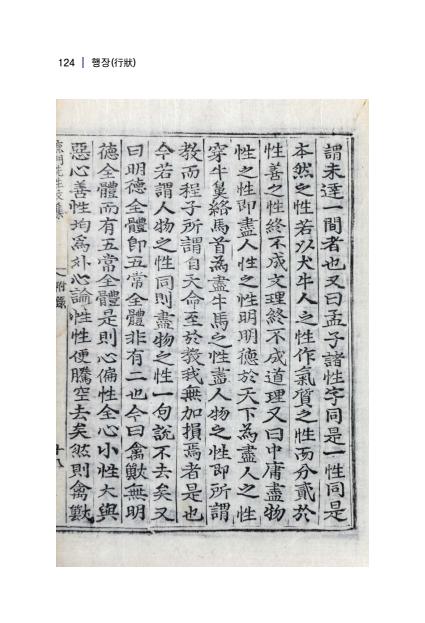 124 | 행장(行狀)
謂未達一間者也又曰孟子諸性字同是一性同是
本然之性若以犬牛人之性作氣質之性而分貳於
性善之性終不成文理終不成道理又曰中庸盡物
性之性即盡人性之性明明德於天下為盡人之性
穿牛鼻絡馬首為盡牛馬之性盡人物之性即所謂
教而程子所謂自天命至於教我無加損焉者是也
今若謂人物之性同則盡物之性一句說不去矣又
曰明德全體即五常全體非有二也今曰禽獸無明
德全體而有五常全體是則心偏性全心小性大與
惡心善性均為外心論性性便騰空去矣然則禽獸
附錄
十八